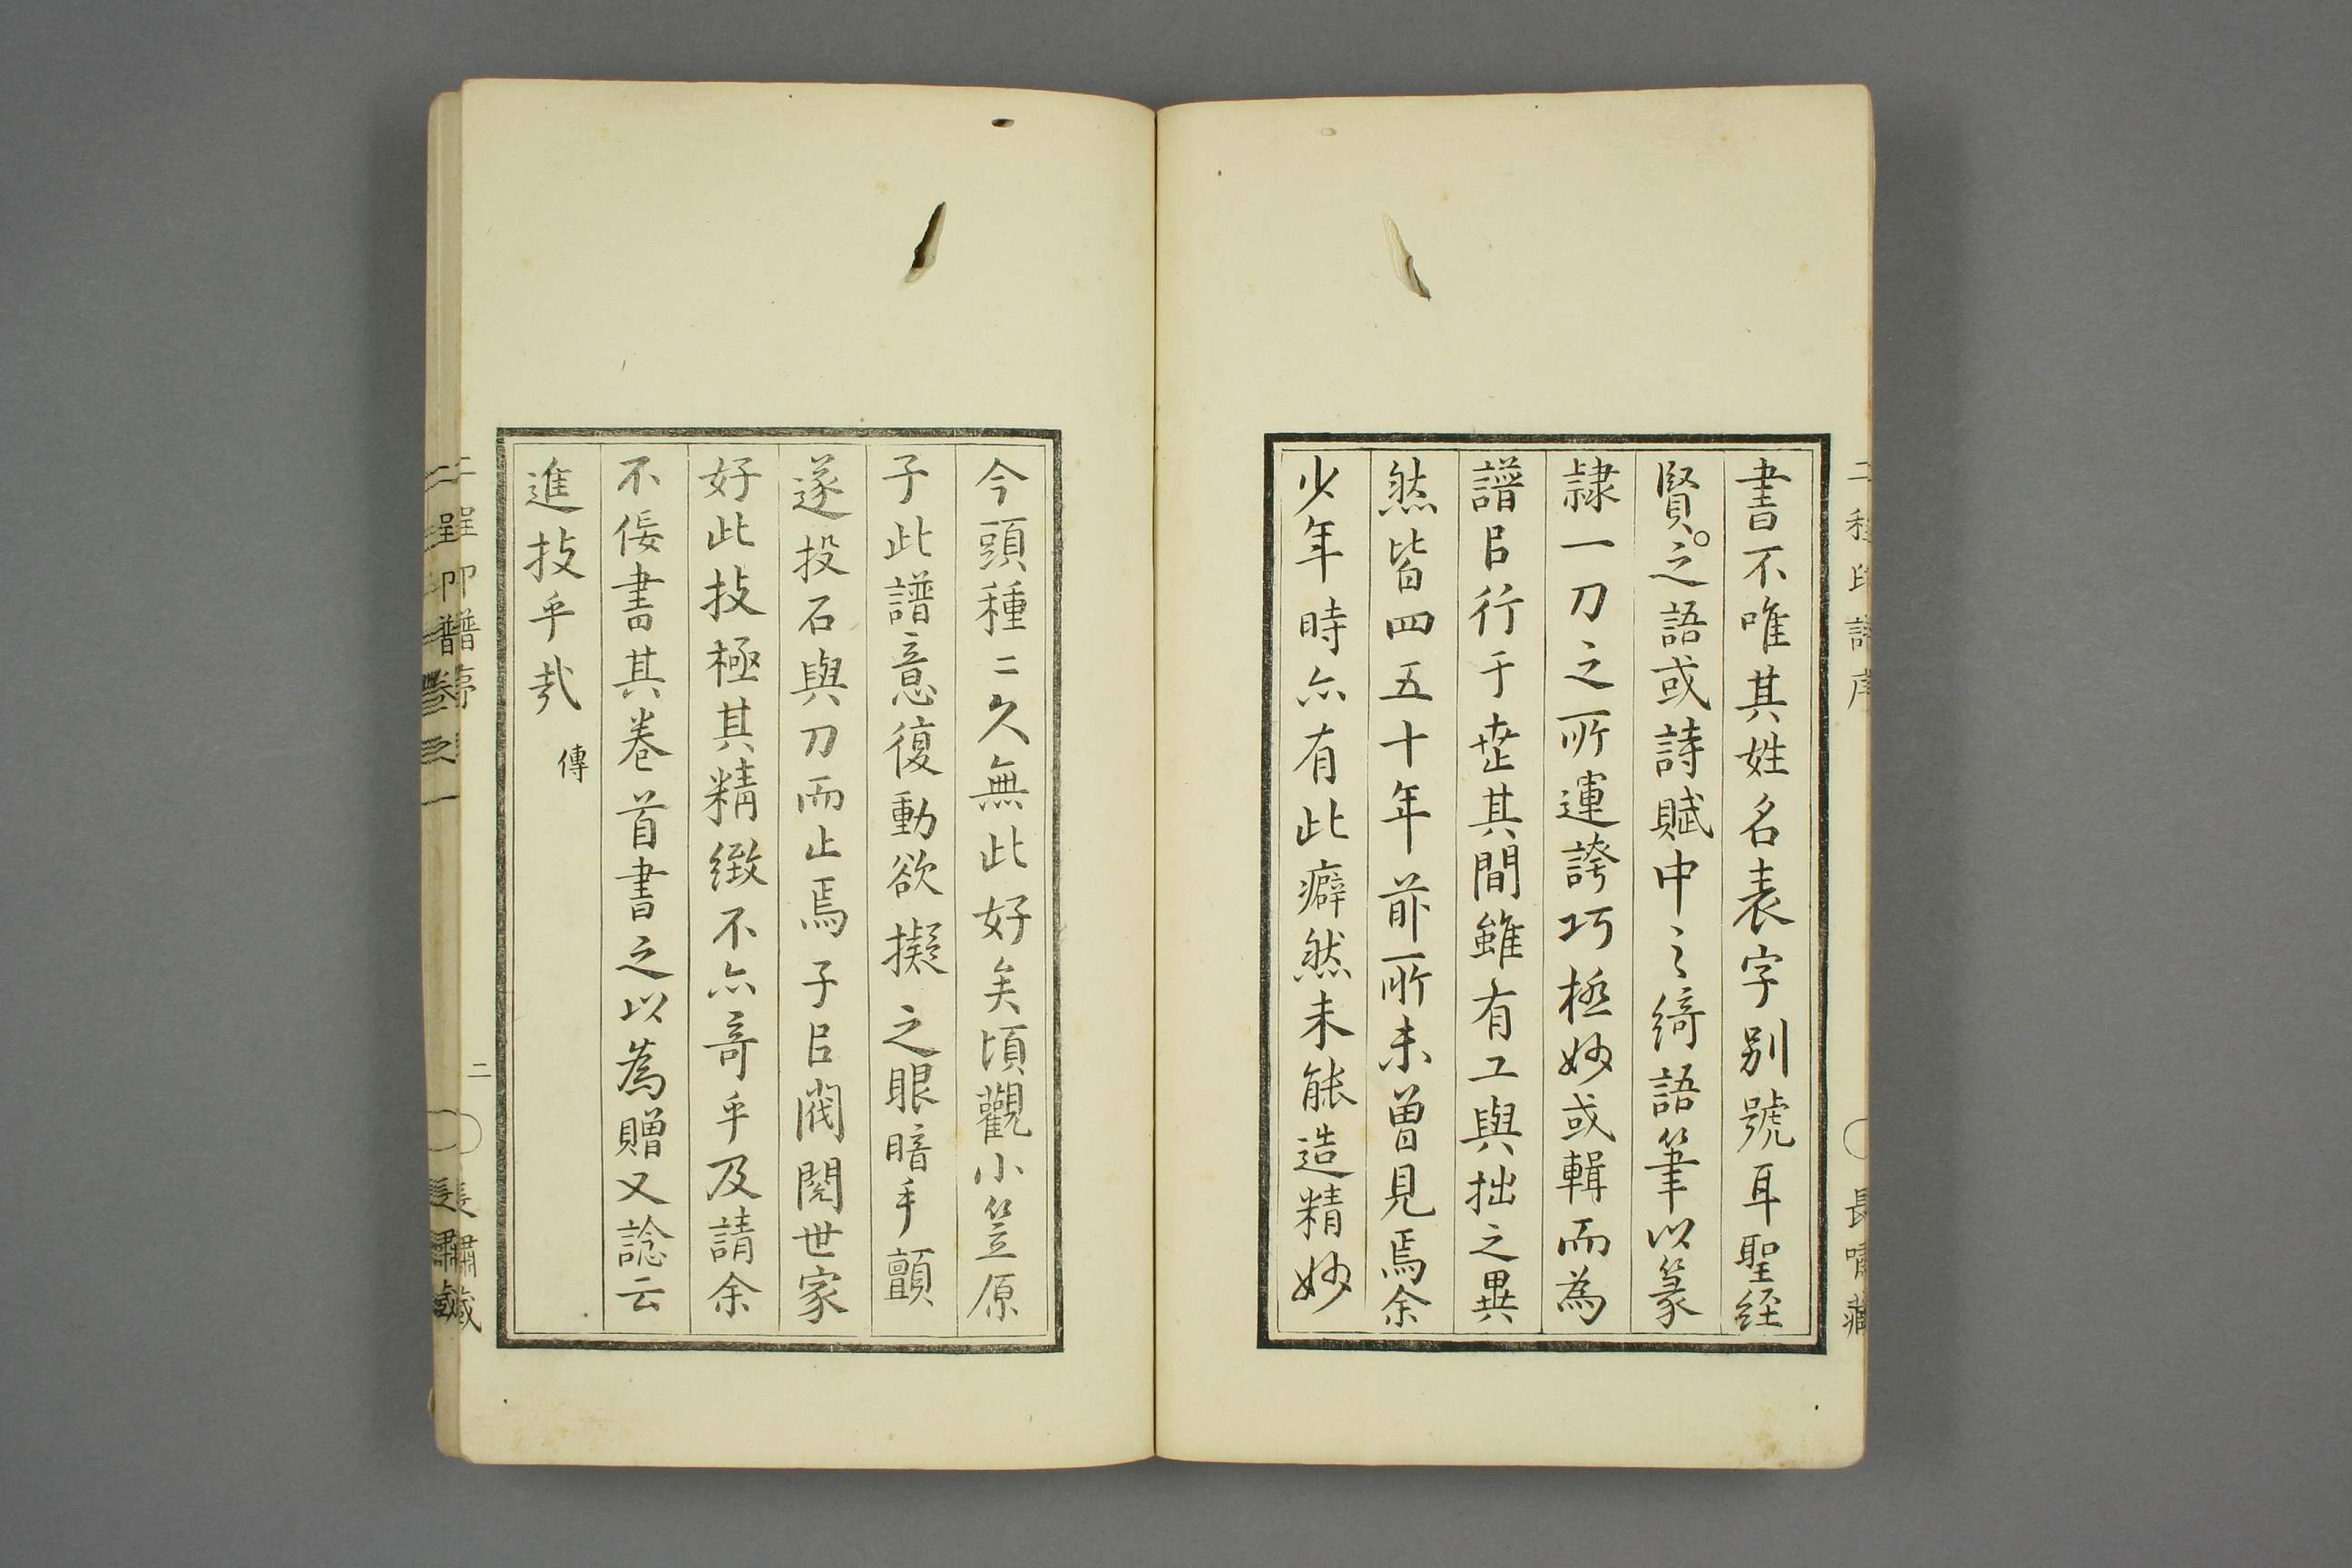 書不唯其姓名表字別號耳聖經
賢。之語或詩賦中之綺語筆以篆
隷一刀之所運誇巧極妙或輯而為
譜㠯行于世其間雖有工與拙之異
然皆四五十年前所未曽見焉余
少年時亦有此癖然未能造精妙
今頭種二久無此好矣頃觀小笠原
子此譜意復動欲擬之眼暗手顫
遂投石與刀而止焉子㠯閥閱世家
好此技極其精緻不亦奇乎及請余
不佞書其卷首書之以為贈又諗云
進技乎哉
傳
二程印譜序
二
長嘯藏
二程印譜卷之一
長嘯藏